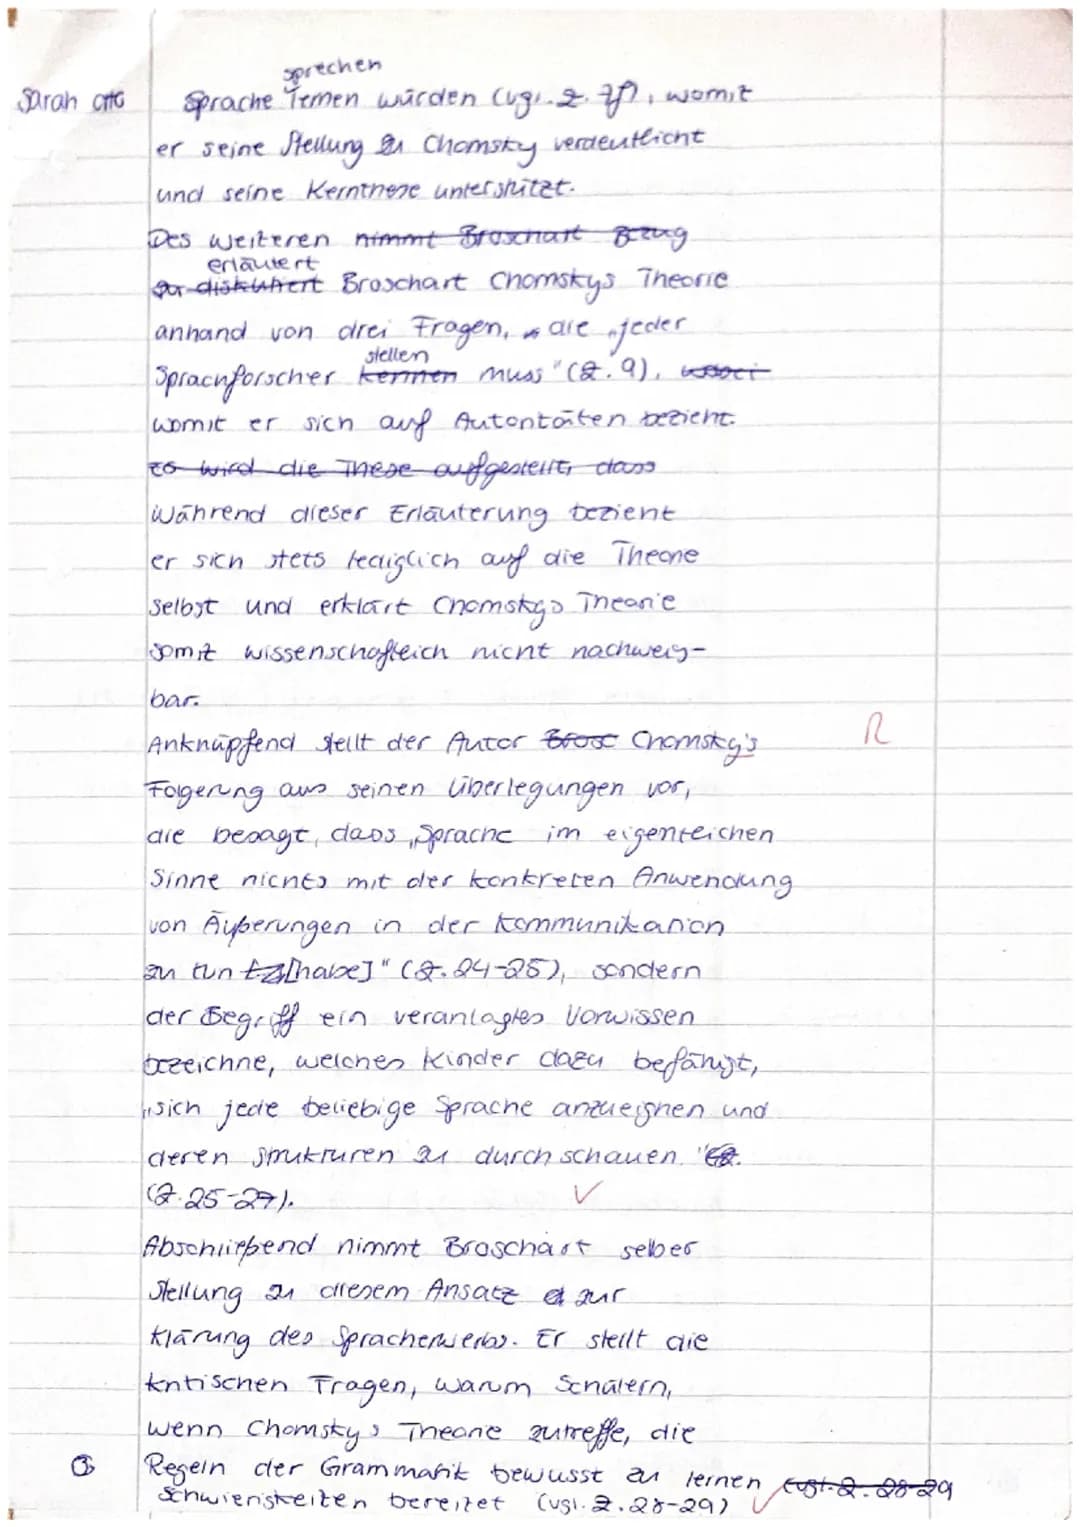 sprechen
Sarah Otto Sprache lernen würden (vgl. Z. 7f), womit
er seine Stellung zu Chomsky verdeutlicht
und seine Kernthese unterstützt.
Des weiteren nimmt Broschart Bezug
erläutert
zur diskutiert Broschart Chomskys Theorie
anhand von drei Fragen, die „jeder
stellen
Sprachforscher kennen muss" (Z. 9),
womit er sich auf Autoritäten bezieht.
Es wird die These aufgestellt, dass
Während dieser Erläuterung bezieht
er sich stets lediglich auf die Theorie
selbst und erklärt Chomskys Theorie
somit wissenschaftlich nicht nachweis-
bar.
Anknüpfend stellt der Autor Brosc Chomsky's R
Folgerung aus seinen Überlegungen vor,
die besagt, dass „Sprache im eigentlichen
Sinne nichts mit der konkreten Anwendung
von Äußerungen in der Kommunikation
zu tun [habe]" (Z. 24-25), sondern
der Begriff ein veranlagtes Vorwissen
bezeichne, welches Kinder dazu befähigt,
„sich jede beliebige Sprache anzueignen und
deren Strukturen zu durchschauen."
(Z. 25-27). ✓
Abschließend nimmt Broschart selber
Stellung zu diesem Ansatz zur
Klärung des Spracherwerbs. Er stellt die
kritischen Fragen, warum Schülern,
wenn Chomskys Theorie zutreffe, die
Regeln der Grammatik bewusst zu lernen (vgl. Z. 28-29
Schwierigkeiten bereitet (vgl. Z. 28-29) ✓